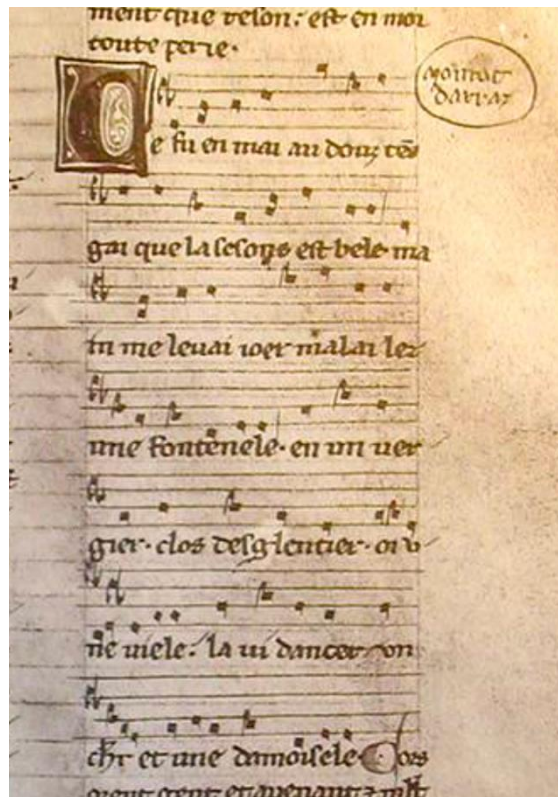 ment que reson: est en moi
toute perie.
moniot
darraz
Ce fu en mai au douz tēs
gai que la sesons est bele. ma
tin me leuai ioer malai lez
une fontenele. en un uer
gier. clos desglentier. oi v
ne uiele. la ui dancer un
chr et une damoisele. Cors
orent gent et auenant ⁊ mlt